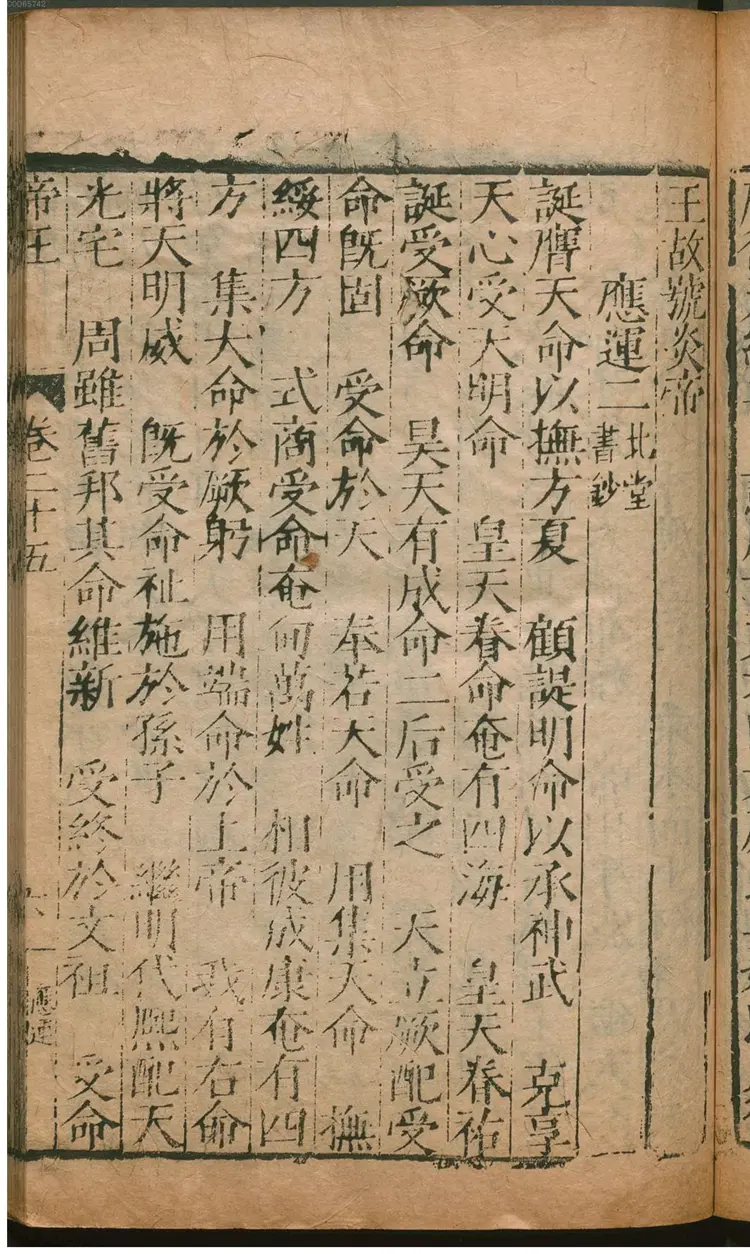 00065742
王故號炎帝
應運二北堂書鈔
誕膺天命以撫方夏　顧諟明命以承神武　克享
天心受天明命　皇天眷命奄有四海　皇天眷祐
誕受厥命　昊天有成命二后受之　天立厥配受
命旣固　受命於天　奉若天命　用集大命　撫
綏四方　式商受命奄甸萬姓　相彼成康奄有四
方　集大命於厥躬　用端命於上帝　我有右命
將天明威　旣受命祉施於孫子　繼明代熙配天
光宅　周雖舊邦其命維新　受終於文祖　受命
帝王　卷二十五　應運